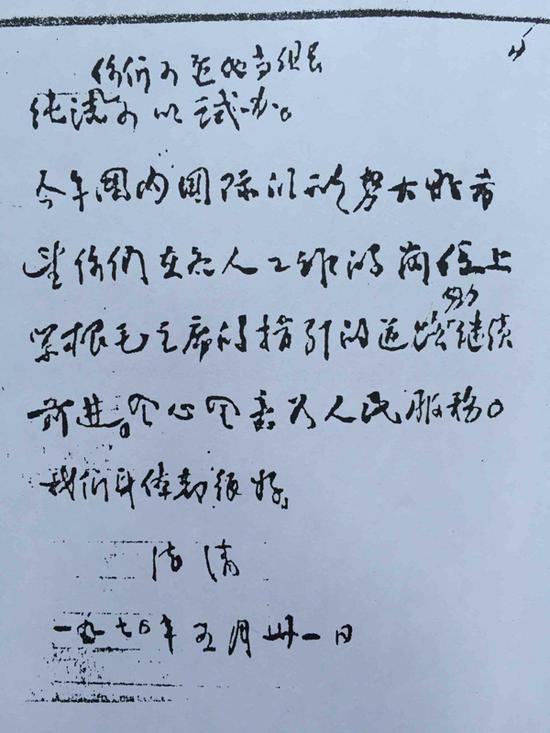 你们可
可以试办。
今年国内国际的形势大好希
望你们在各人工作的岗位上
毛主席的指引的道路继续
前进。全心全意为人民服务。
我们身体都很好。
清
一九七〇年五月卅一日